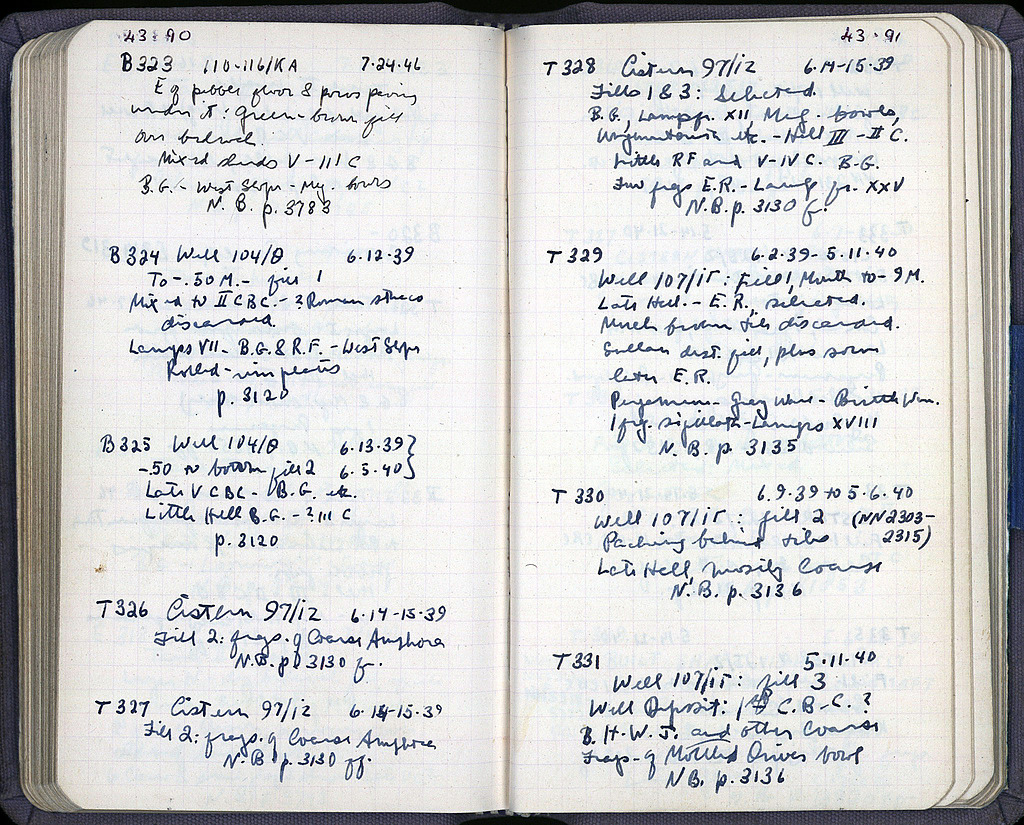 43·90
B323 110-116/KA 7-24-46
E of pebble floor & poros paving
under it: green-brown fill
on bedrock.
Mixed sherds V-III C
B.G. - West Slope - Meg. bowls
N.B. p. 3783
B324 Well 104/Θ 6.12.39
To -.50 M. - fill 1
Mixed to II C BC. - 2 Roman
discarded.
Lamps VII - B.G. & R.F. - West Slope
Rolled-rim
p. 3120
B325 Well 104/Θ 6.13.39}
-.50 to bottom fill 2 6.5.40
Late V C BC - B.G. etc.
Little Hell B.G. - ? III C
p. 3120
T326 Cistern 97/12 6-14-15-39
Fill 2: frags. of Coarse Amphora
N.B. p. 3130 f.
T327 Cistern 97/12 6-14-15-39
Fill 2: frags. of Coarse Amphora
N.B. p. 3130 ff.
43·91
T328 Cistern 97/12 6-14-15-39
Fills 1 & 3: Selected.
B.G., Lamp fr. XII, Meg. bowls,
etc. - Hell III - II C.
Little RF and V-IV C. B-G.
Few frgs E.R. - Lamp fr. XXV
N.B. p. 3130 f.
T329 6.2.39 - 5.11.40
Well 107/ΙΣΤ: Fill 1, Mouth to -9M.
Late Hell. - E.R., selected.
Much from fill discarded.
Sullan dest. fill, plus some
later E.R.
Pergamene - Gray Ware - Brittle Ware.
1 frg. sigillata - Lamps XVIII
N.B. p 3135
T330 6.9.39 to 5.6.40
Well 107/ΙΣΤ: fill 2 (NN2303-
Packing behind tiles 2315)
Late Hell, mostly Coarse
N.B. p. 3136
T331 5-11-40
Well 107/ΙΣΤ: fill 3
Well Deposit: C. B-C. ?
B.H.W.J. and other Coarse
Frags. of Mottled bowl
N.B. p. 3136